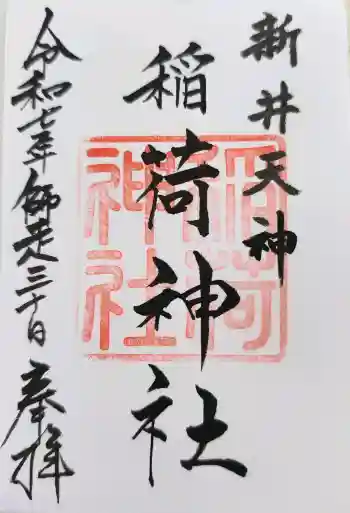 新井天神
稲荷神社
令和七年師走三十日 奉拝
稲荷神社